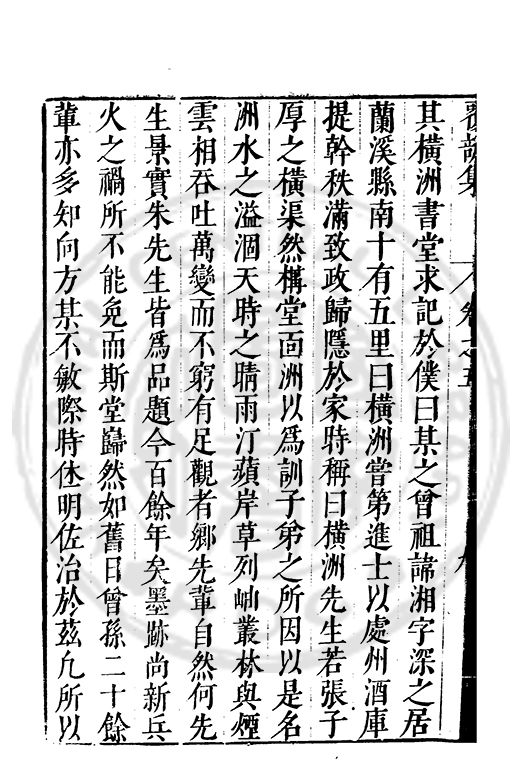 覆瓿集 卷之五 九
其橫洲書堂求記於僕曰某之曾祖諱湘字深之居
蘭溪縣南十有五里曰橫洲嘗第進士以處州酒庫
提幹秩滿致政歸隱於家時稱曰橫洲先生若張子
厚之橫渠然構堂面洲以為訓子弟之所因以是名
洲水之溢涸天時之晴雨汀蘋岸草列岫叢林與煙
雲相吞吐萬變而不窮有足觀者鄉先輩自然何先
生景實朱先生皆為品題今百餘年矣墨跡尚新兵
火之禍所不能免而斯堂巋然如舊日曾孫二十餘
輩亦多知向方某不敏際時休明佐治於茲凡所以